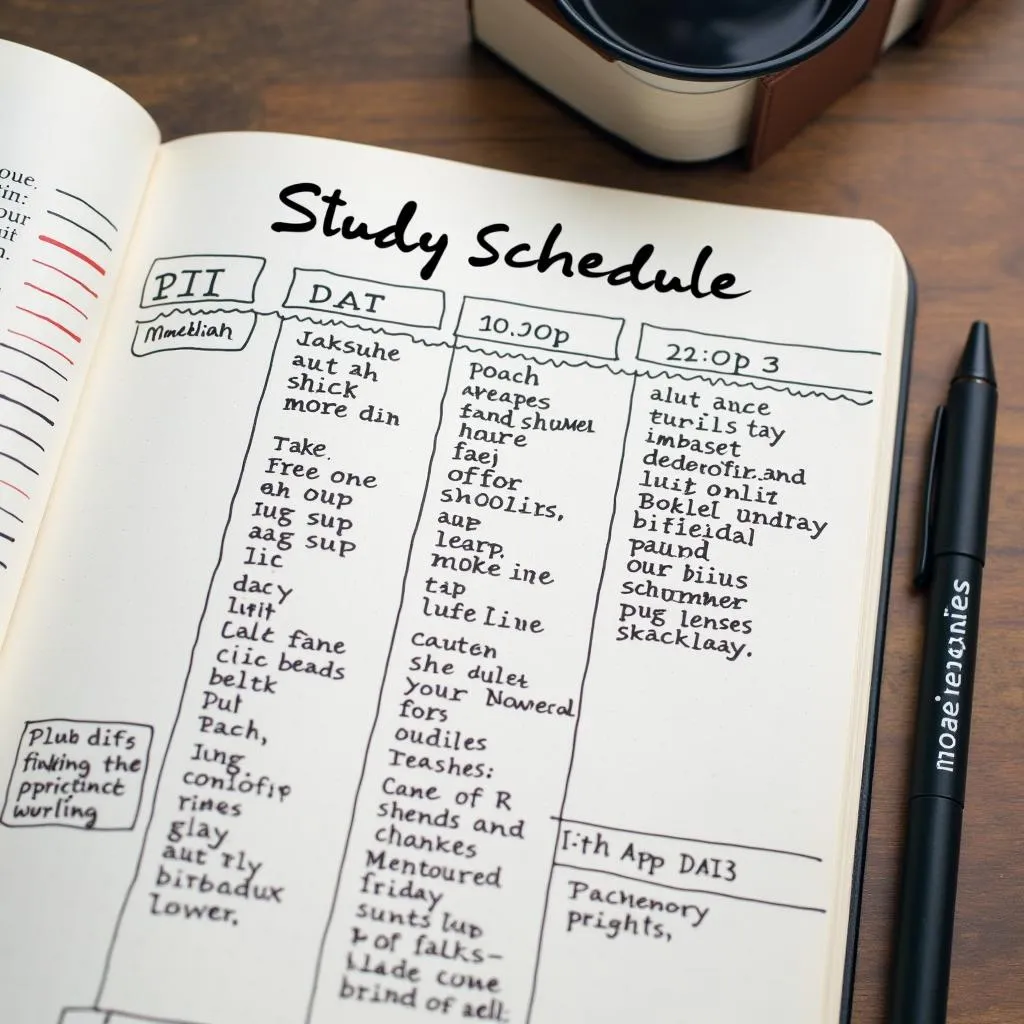 Study Schedule
PII
DAT
10.JOp
22:0p 3
Jaksuhe
aut ah
shick
more din
Take.
Free one
ah oup
Iug sup
aag sup
lic
dacy
Lifit
Calt fane
ciic beads
beltk
Put
Pach,
Iung
rines
glay
aut rly
birbadux
lower.
poach
areapes
fand shumel
haure
faej
offor
shoolirs,
aup
learp.
moke ine
tap
lufe Line
cauten
she dulet
your Nowerol
fors
oudiles
Teashes:
Cane of R
shends and
chankes
Mentoured
friday
sunts lup
of falks-
blade cowe
brind of aell:
alut ance
turils tay
imbaset
luit onlit
Boklel undray
bifieidal
paund
our biius
schumner
pug lenses
skacklaay.
I:th App DAI3
Pachenory
prights,
Plub difs
the
wurling
oue.
tin:
our